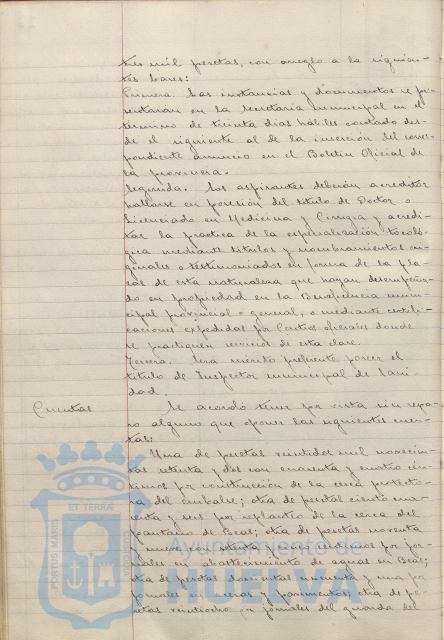 tres mil pesetas, con arreglo a la siguien-
tes bases:
Primera. Las instancias y documentos se pre-
sentarán en la Secretaría Municipal en el
término de treinta días hábiles contado des-
de el siguiente al de la inserción del corres-
pondiente anuncio en el Boletín Oficial de
la provincia.
Segunda. Los aspirantes deberán acreditar
hallarse en posesión del título de Doctor o
Licenciado en Medicina y Cirugía y acredi-
tar la práctica de la especialización tocoló-
gica mediante títulos y nombramientos ori-
ginales o testimoniados en forma de las pla-
zas de esta naturaleza que hayan desempeña-
do en propiedad en la Beneficencia muni-
cipal provincial o general, o mediante certifi-
caciones expedidas por Centros oficiales donde
se practiquen servicios de esta clase.
Tercera. Será mérito preferente poseer el
título de Inspector municipal de Sani-
dad.
Cuentas
Se acordó tener por vista sin repa-
ro alguno que oponer las siguientes cuen-
tas:
Una de pesetas veintidos mil novecien-
tas setenta y dos con cuarenta y cuatro cén-
timos por construcción de la cerca protecto-
ra del embalse; otra de pesetas ciento cua-
renta y seis por replantío de la cerca del
pantano de Beas; otra de pesetas noventa
y nueve con setenta y cinco céntimos por jor-
nales en abastecimiento de aguas en Beas;
otra de pesetas doscientas noventa y una por
jornales en aceras y pavimentos; otra de pe-
setas veintiocho en jornales del guarda del
PORTUS MARIS
ET TERRÆ
CUSTODIA
Ayuntamiento de
HUELVA